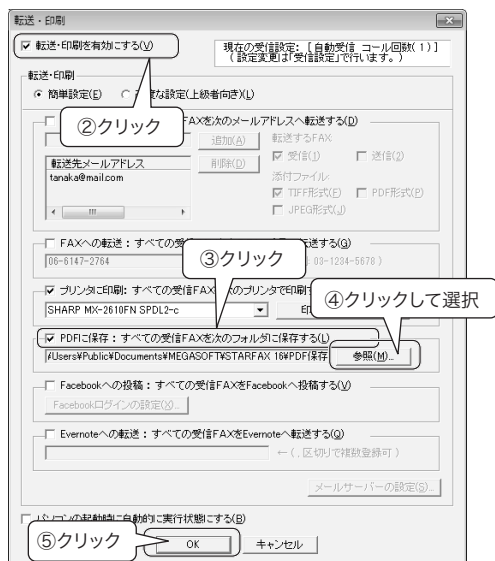 転送・印刷
転送・印刷を有効にする(V)
現在の受信設定: [自動受信 コール回数(1)]
(設定変更は「受信設定」で行います。)
②クリック
転送・印刷
簡単設定(E) な設定(上級者向き)(L)
FAXを次のメールアドレスへ転送する(D)
追加(A) 転送するFAX
転送先メールアドレス 削除(D) 受信(1) 送信(2)
tanaka@mail.com 添付ファイル
TIFF形式(F) PDF形式(P)
JPEG形式(J)
FAXへの転送:すべての受 送する(G)
③クリック
06-6147-2764 : 03-1234-5678 )
プリンタに印刷: すべての受信FAX 次のプリンタで印刷
④クリックして選択
SHARP MX-2610FN SPDL2-c 印
PDFに保存:すべての受信FAXを次のフォルダに保存する(L)
/Users¥Public¥Documents¥MEGASOFT¥STARFAX 16¥PDF保存 参照(M)...
Facebookへの投稿:すべての受信FAXをFacebookへ投稿する(V)
Facebookログインの設定(X)...
Evernoteへの転送:すべての受信FAXをEvernoteへ転送する(Q)
←(,区切りで複数登録可)
メールサーバーの設定(S)...
パソコンの起動時に自動的に実行状態にする(B)
⑤クリック
OK キャンセル